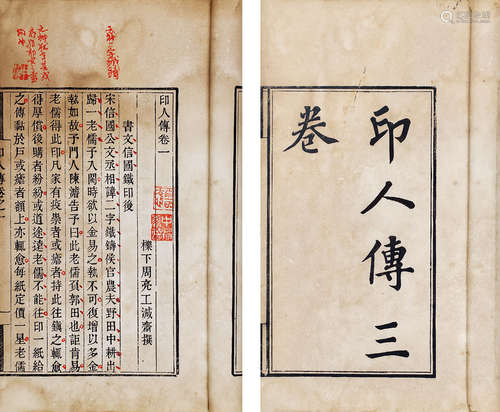 印人傳三
卷
印人傳卷一
櫟下周亮工減齋撰
書文信國鐵印後
宋信國公文丞相諱二字鐵鑄侯官農夫野田中耕出
歸一老儒予入閩時欲以金易之執不可復增以多金
執如故予門人陳濬告予曰此老儒負郭田也詎肯易
老儒得此印凡家有疫祟者或瘧者持此往鎮之輒愈
得厚償後購者紛紛或道途遠老儒不能往印一紙給
之傳黏於戶或瘧者額上亦輒愈每紙定價一星老儒